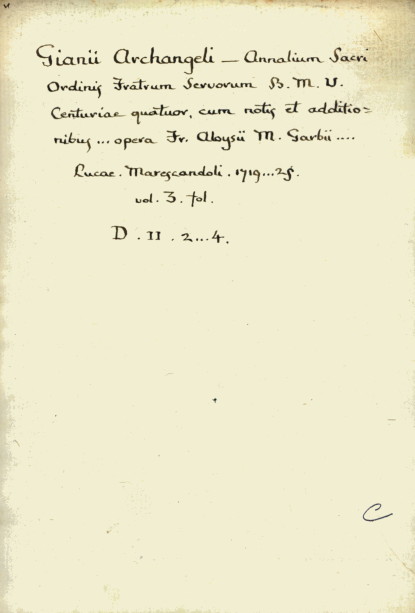 Gianii Archangeli — Annalium Sacri
Ordinis Fratrum Servorum B. M. V.
Centuriae quatuor, cum notis et additio=
nibus ... opera Fr. Aloysii M. Garbii ....
Lucae. Marescandoli. 1719...25.
vol. 3. fol.
D . II . 2...4.
C